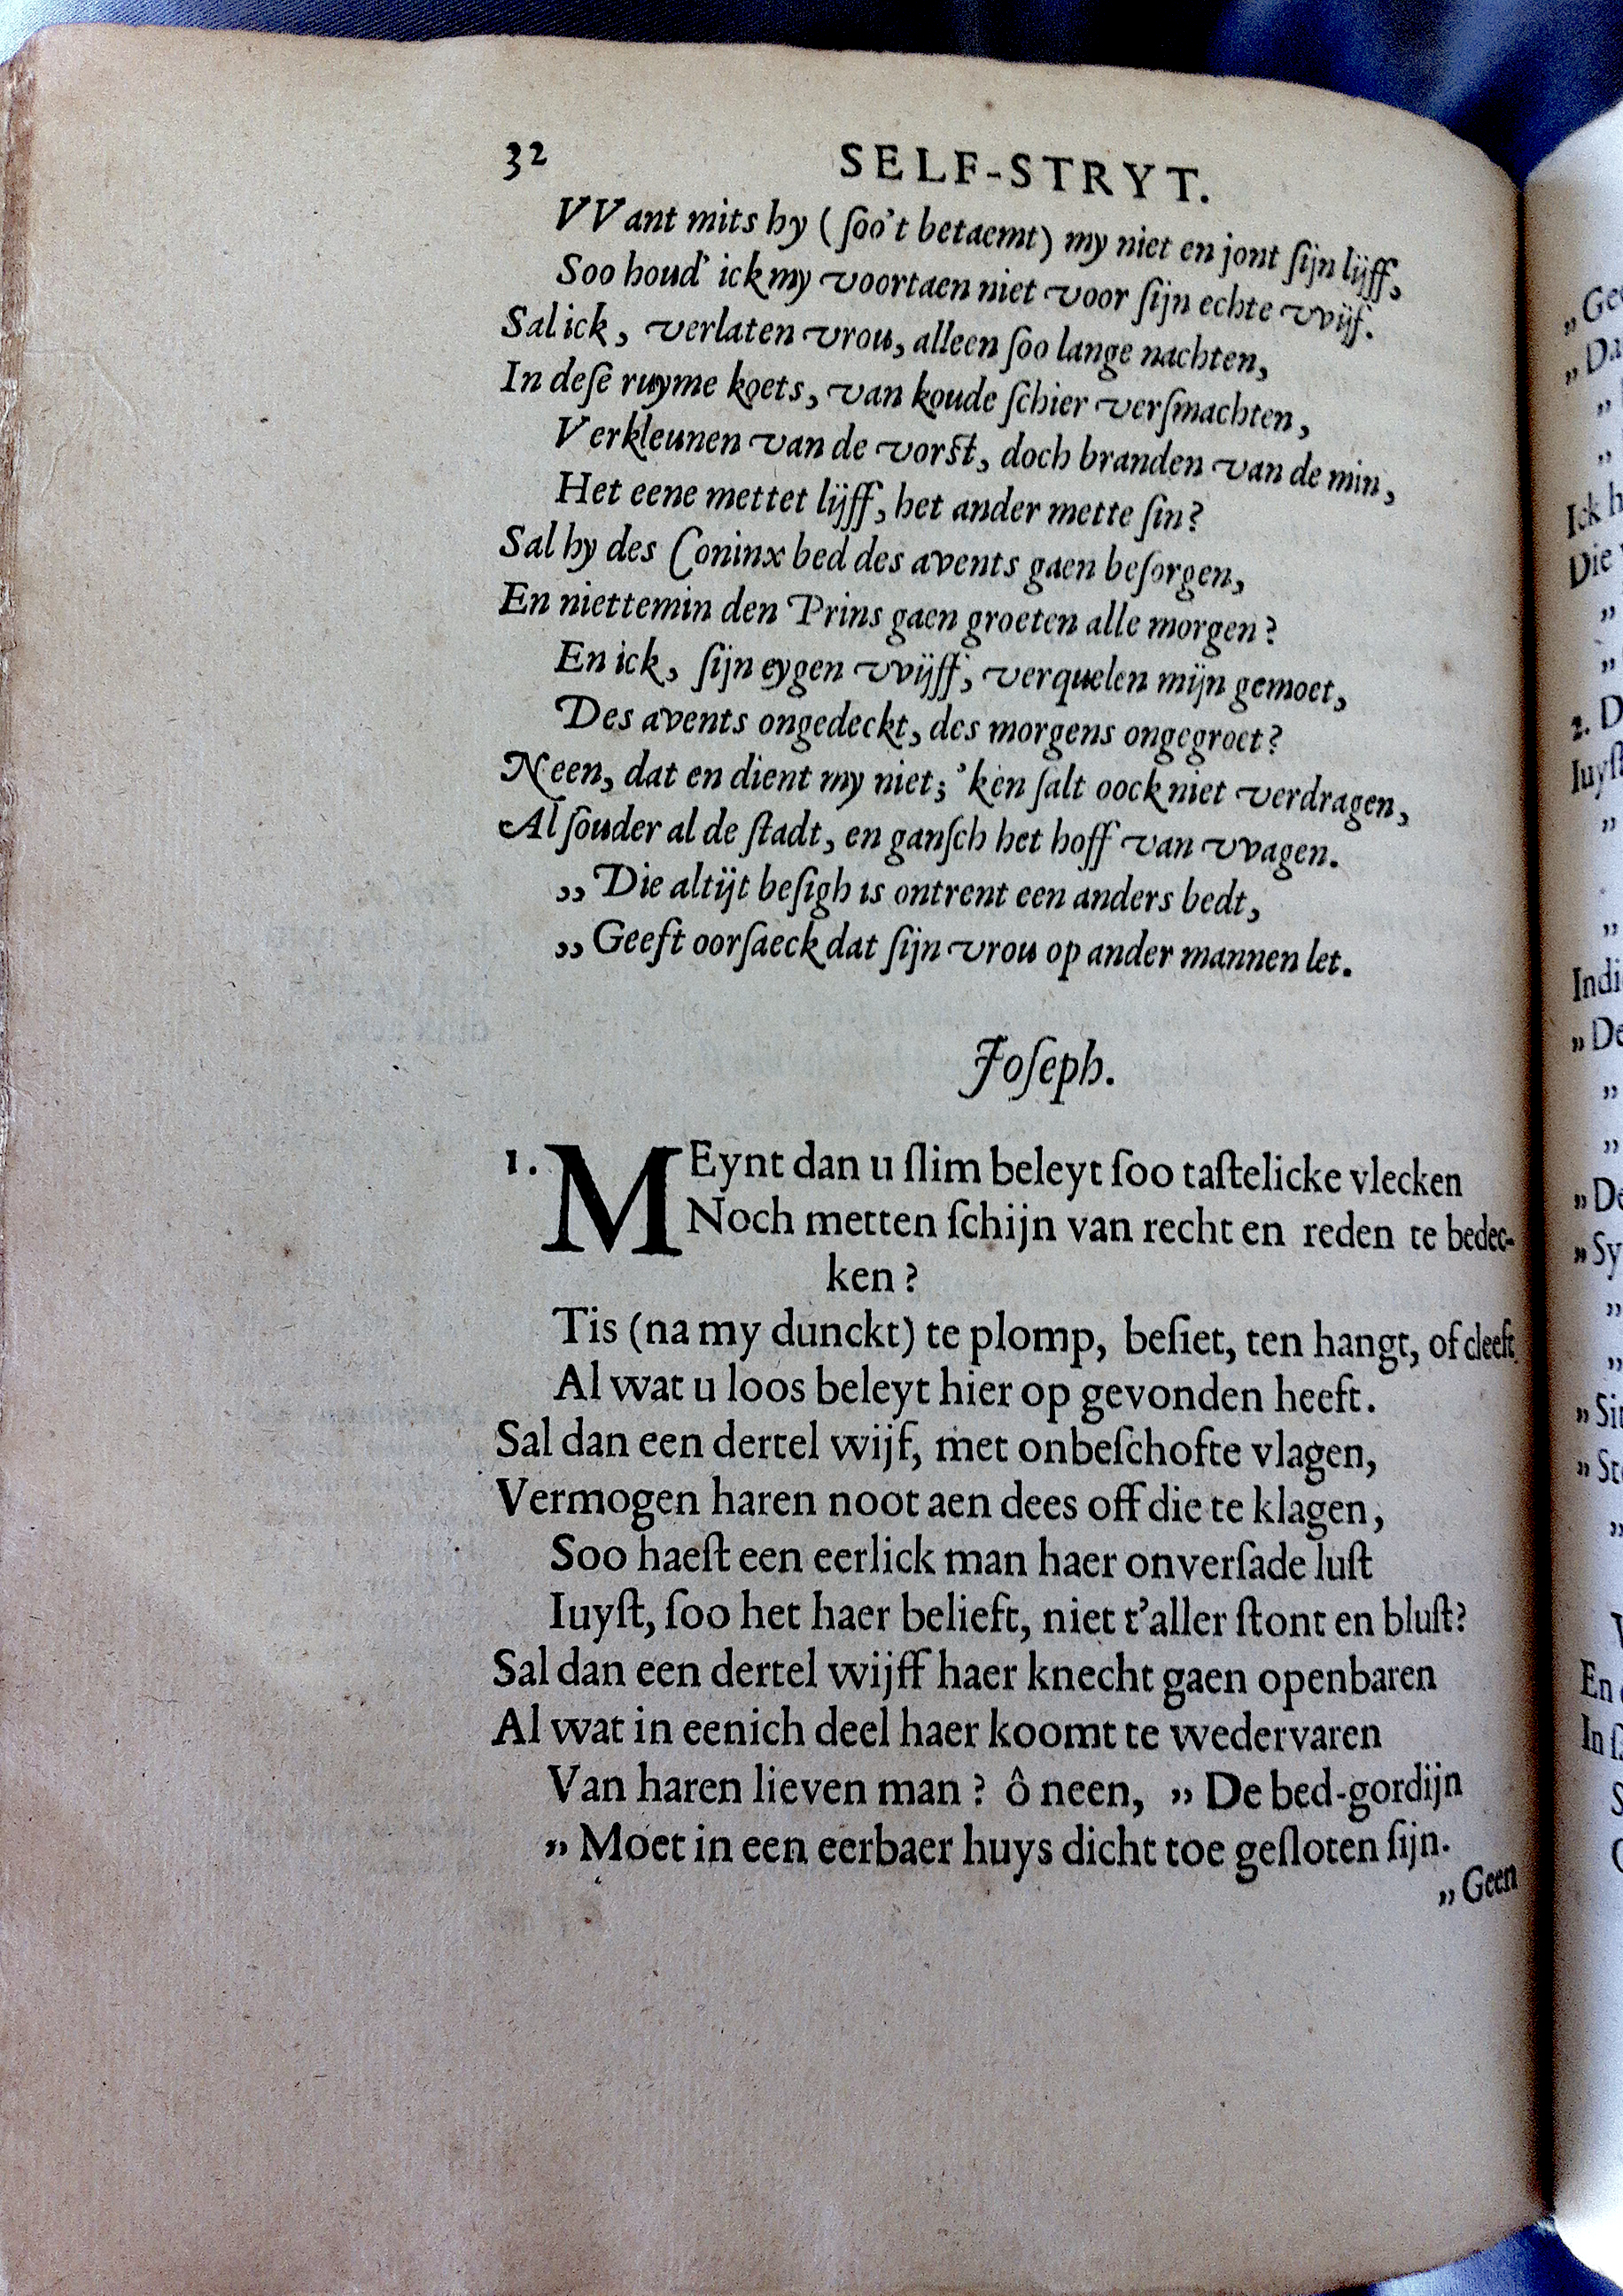 32 SELF-STRYT.
VVant mits hy (ſoo't betaemt) my niet en jont ſijn lijff,
Soo houd' ick my voortaen niet voor ſijn echte vvijf.
Sal ick, verlaten vrou, alleen ſoo lange nachten,
In deſe ruyme koets, van koude ſchier verſmachten,
Verkleunen van de vorſt, doch branden van de min,
Het eene mettet lijff, het ander mette ſin?
Sal hy des Coninx bed des avents gaen beſorgen,
En niettemin den Prins gaen groeten alle morgen?
En ick, ſijn eygen vvijff, verquelen mijn gemoet,
Des avents ongedeckt, des morgens ongegroet?
Neen, dat en dient my niet; 'ken ſalt oock niet verdragen,
Al ſouder al de ſtadt, en ganſch het hoff van vvagen.
„Die altijt beſigh is ontrent een anders bedt,
„Geeft oorſaeck dat ſijn vrou op ander mannen let.
Joſeph.
1. MEynt dan u ſlim beleyt ſoo taſtelicke vlecken
Noch metten ſchijn van recht en reden te bedec-
ken?
Tis (na my dunckt) te plomp, beſiet, ten hangt, of cleeft
Al wat u loos beleyt hier op gevonden heeft.
Sal dan een dertel wijf, met onbeſchofte vlagen,
Vermogen haren noot aen dees off die te klagen,
Soo haeſt een eerlick man haer onverſade luſt
Iuyſt, ſoo het haer belieft, niet t'aller ſtont en bluſt?
Sal dan een dertel wijff haer knecht gaen openbaren
Al wat in eenich deel haer koomt te wedervaren
Van haren lieven man? ô neen, „De bed-gordijn
„Moet in een eerbaer huys dicht toe geſloten ſijn.
„Geen